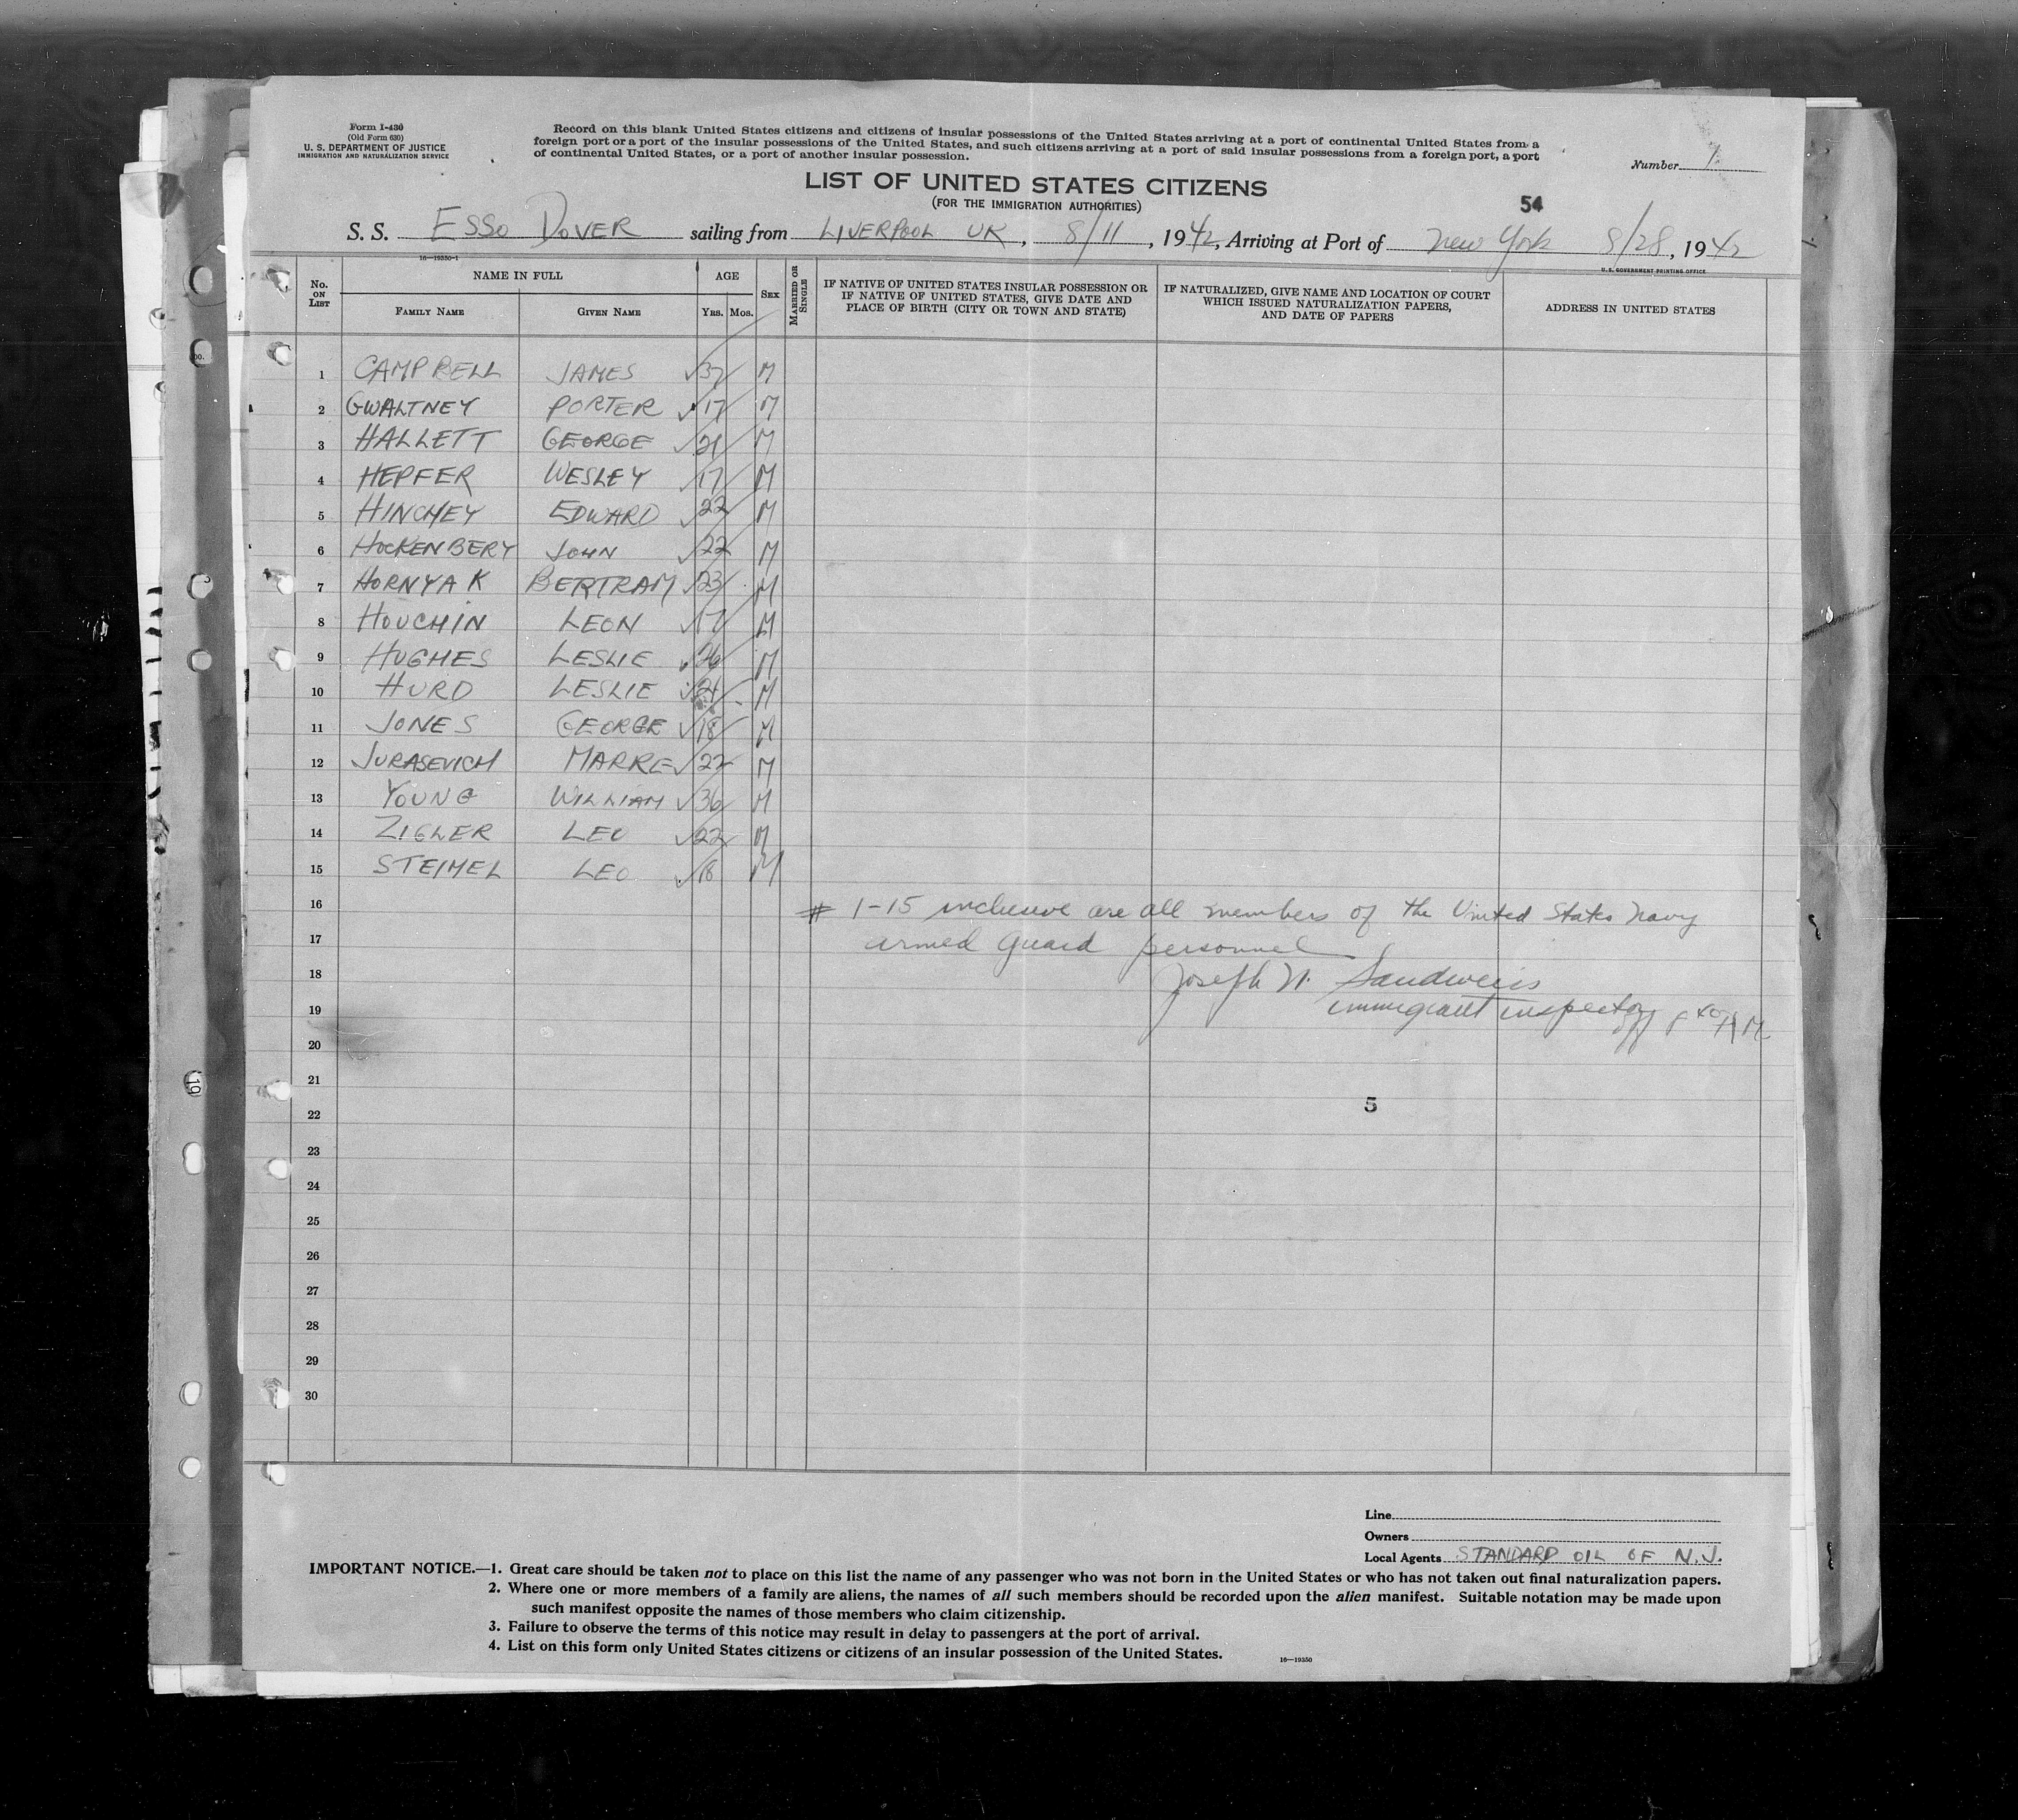 Form I-430
(Old Form 630)
U. S. DEPARTMENT OF JUSTICE
IMMIGRATION AND NATURALIZATION SERVICE
Record on this blank United States citizens and citizens of insular possessions of the United States arriving at a port of continental United States from a
foreign port or a port of the insular possessions of the United States, and such citizens arriving at a port of said insular possessions from a foreign port, a port
of continental United States, or a port of another insular possession.
Number 1
LIST OF UNITED STATES CITIZENS
(FOR THE IMMIGRATION AUTHORITIES)
54
S. S. ESSO DOVER sailing from LIVERPOOL UK, 8/11, 1942, Arriving at Port of New York 8/28, 1942
16—19350-1
U. S. GOVERNMENT PRINTING OFFICE
No. ON LIST
NAME IN FULL
FAMILY NAME
GIVEN NAME
AGE
YRS.
MOS.
SEX
MARRIED OR SINGLE
IF NATIVE OF UNITED STATES INSULAR POSSESSION OR
IF NATIVE OF UNITED STATES, GIVE DATE AND
PLACE OF BIRTH (CITY OR TOWN AND STATE)
IF NATURALIZED, GIVE NAME AND LOCATION OF COURT
WHICH ISSUED NATURALIZATION PAPERS,
AND DATE OF PAPERS
ADDRESS IN UNITED STATES
1 CAMPBELL JAMES 37 M
2 GWALTNEY PORTER 17 M
3 HALLETT GEORGE 21 M
4 HEPFER WESLEY 17 M
5 HINCHEY EDWARD 22 M
6 HOCKENBERY JOHN 22 M
7 HORNYAK BERTRAM 23 M
8 HOUCHIN LEON 17 M
9 HUGHES LESLIE 26 M
10 HURD LESLIE 21 M
11 JONES GEORGE 18 M
12 JURASEVICH MARRE 22 M
13 YOUNG WILLIAM 36 M
14 ZIGLER LEO 22 M
15 STEIMEL LEO 18 M
16 # 1-15 inclusive are all members of the United States Navy
17 armed guard personnel
18 Joseph W. Sandweiss
19 immigrant inspector
20
21
22
5
23
24
25
26
27
28
29
30
Line
Owners
Local Agents STANDARD OIL OF N.J.
IMPORTANT NOTICE.—1. Great care should be taken not to place on this list the name of any passenger who was not born in the United States or who has not taken out final naturalization papers.
2. Where one or more members of a family are aliens, the names of all such members should be recorded upon the alien manifest. Suitable notation may be made upon
such manifest opposite the names of those members who claim citizenship.
3. Failure to observe the terms of this notice may result in delay to passengers at the port of arrival.
4. List on this form only United States citizens or citizens of an insular possession of the United States.
16—19350